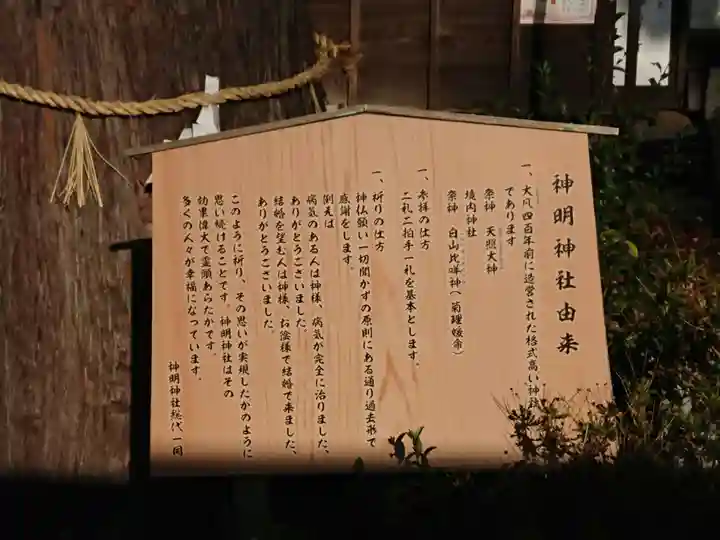 神明神社由来
一、大凡四百年前に造営された格式高い神社
であります
祭神 天照大神
境内神社
祭神 白山比咩神（菊理媛命）
一、参拝の仕方
二礼二拍手一礼を基本とします。
一、祈りの仕方
神仏願い一切聞かずの原則にある通り過去形で
感謝をします。
例えば
病気のある人は神様、病気が完全に治りました、
ありがとうございました。
結婚を望む人は神様、お陰様で結婚で来ました、
ありがとうございました。
このように祈り、その思いが実現したかのように
思い続けることです。神明神社はその
効果偉大で霊顕あらたかです。
多くの人々が幸福になっています。
神明神社総代一同